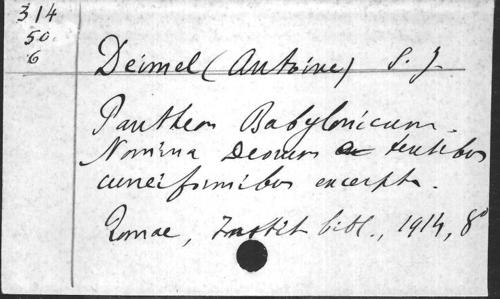 314
50
6
Deimel (Antoine) S. J.
Pantheon Babylonicum.
Nomina Deorum e textibus
cuneiformibus excerpta.
Romae, Instit bibl., 1914, 8°